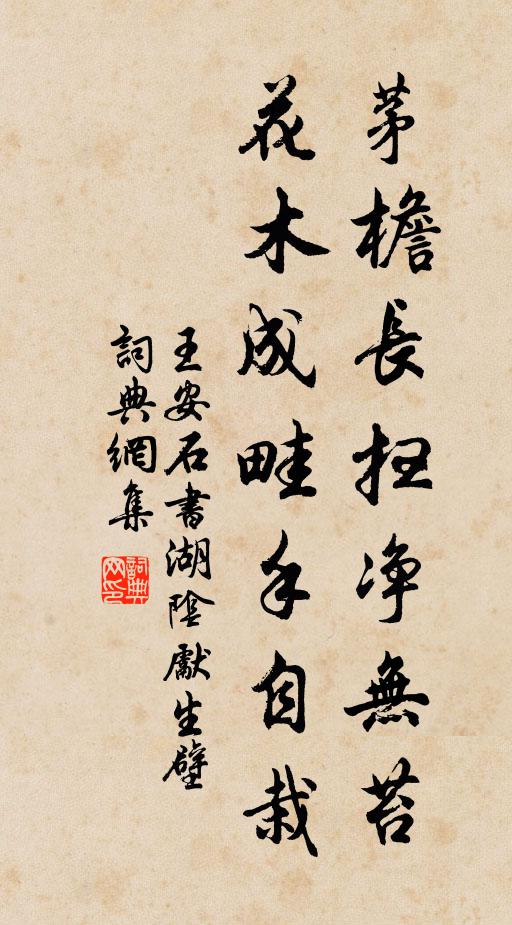 茅檐長扫净無苔
花木成畦手自栽
王安石書湖陰獻生壁
詞典網集
詞典网印